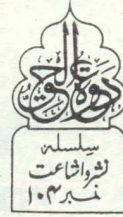 دعوة الحق
سلسلہ
نشرواشاعت
نمبر ۱۰۴